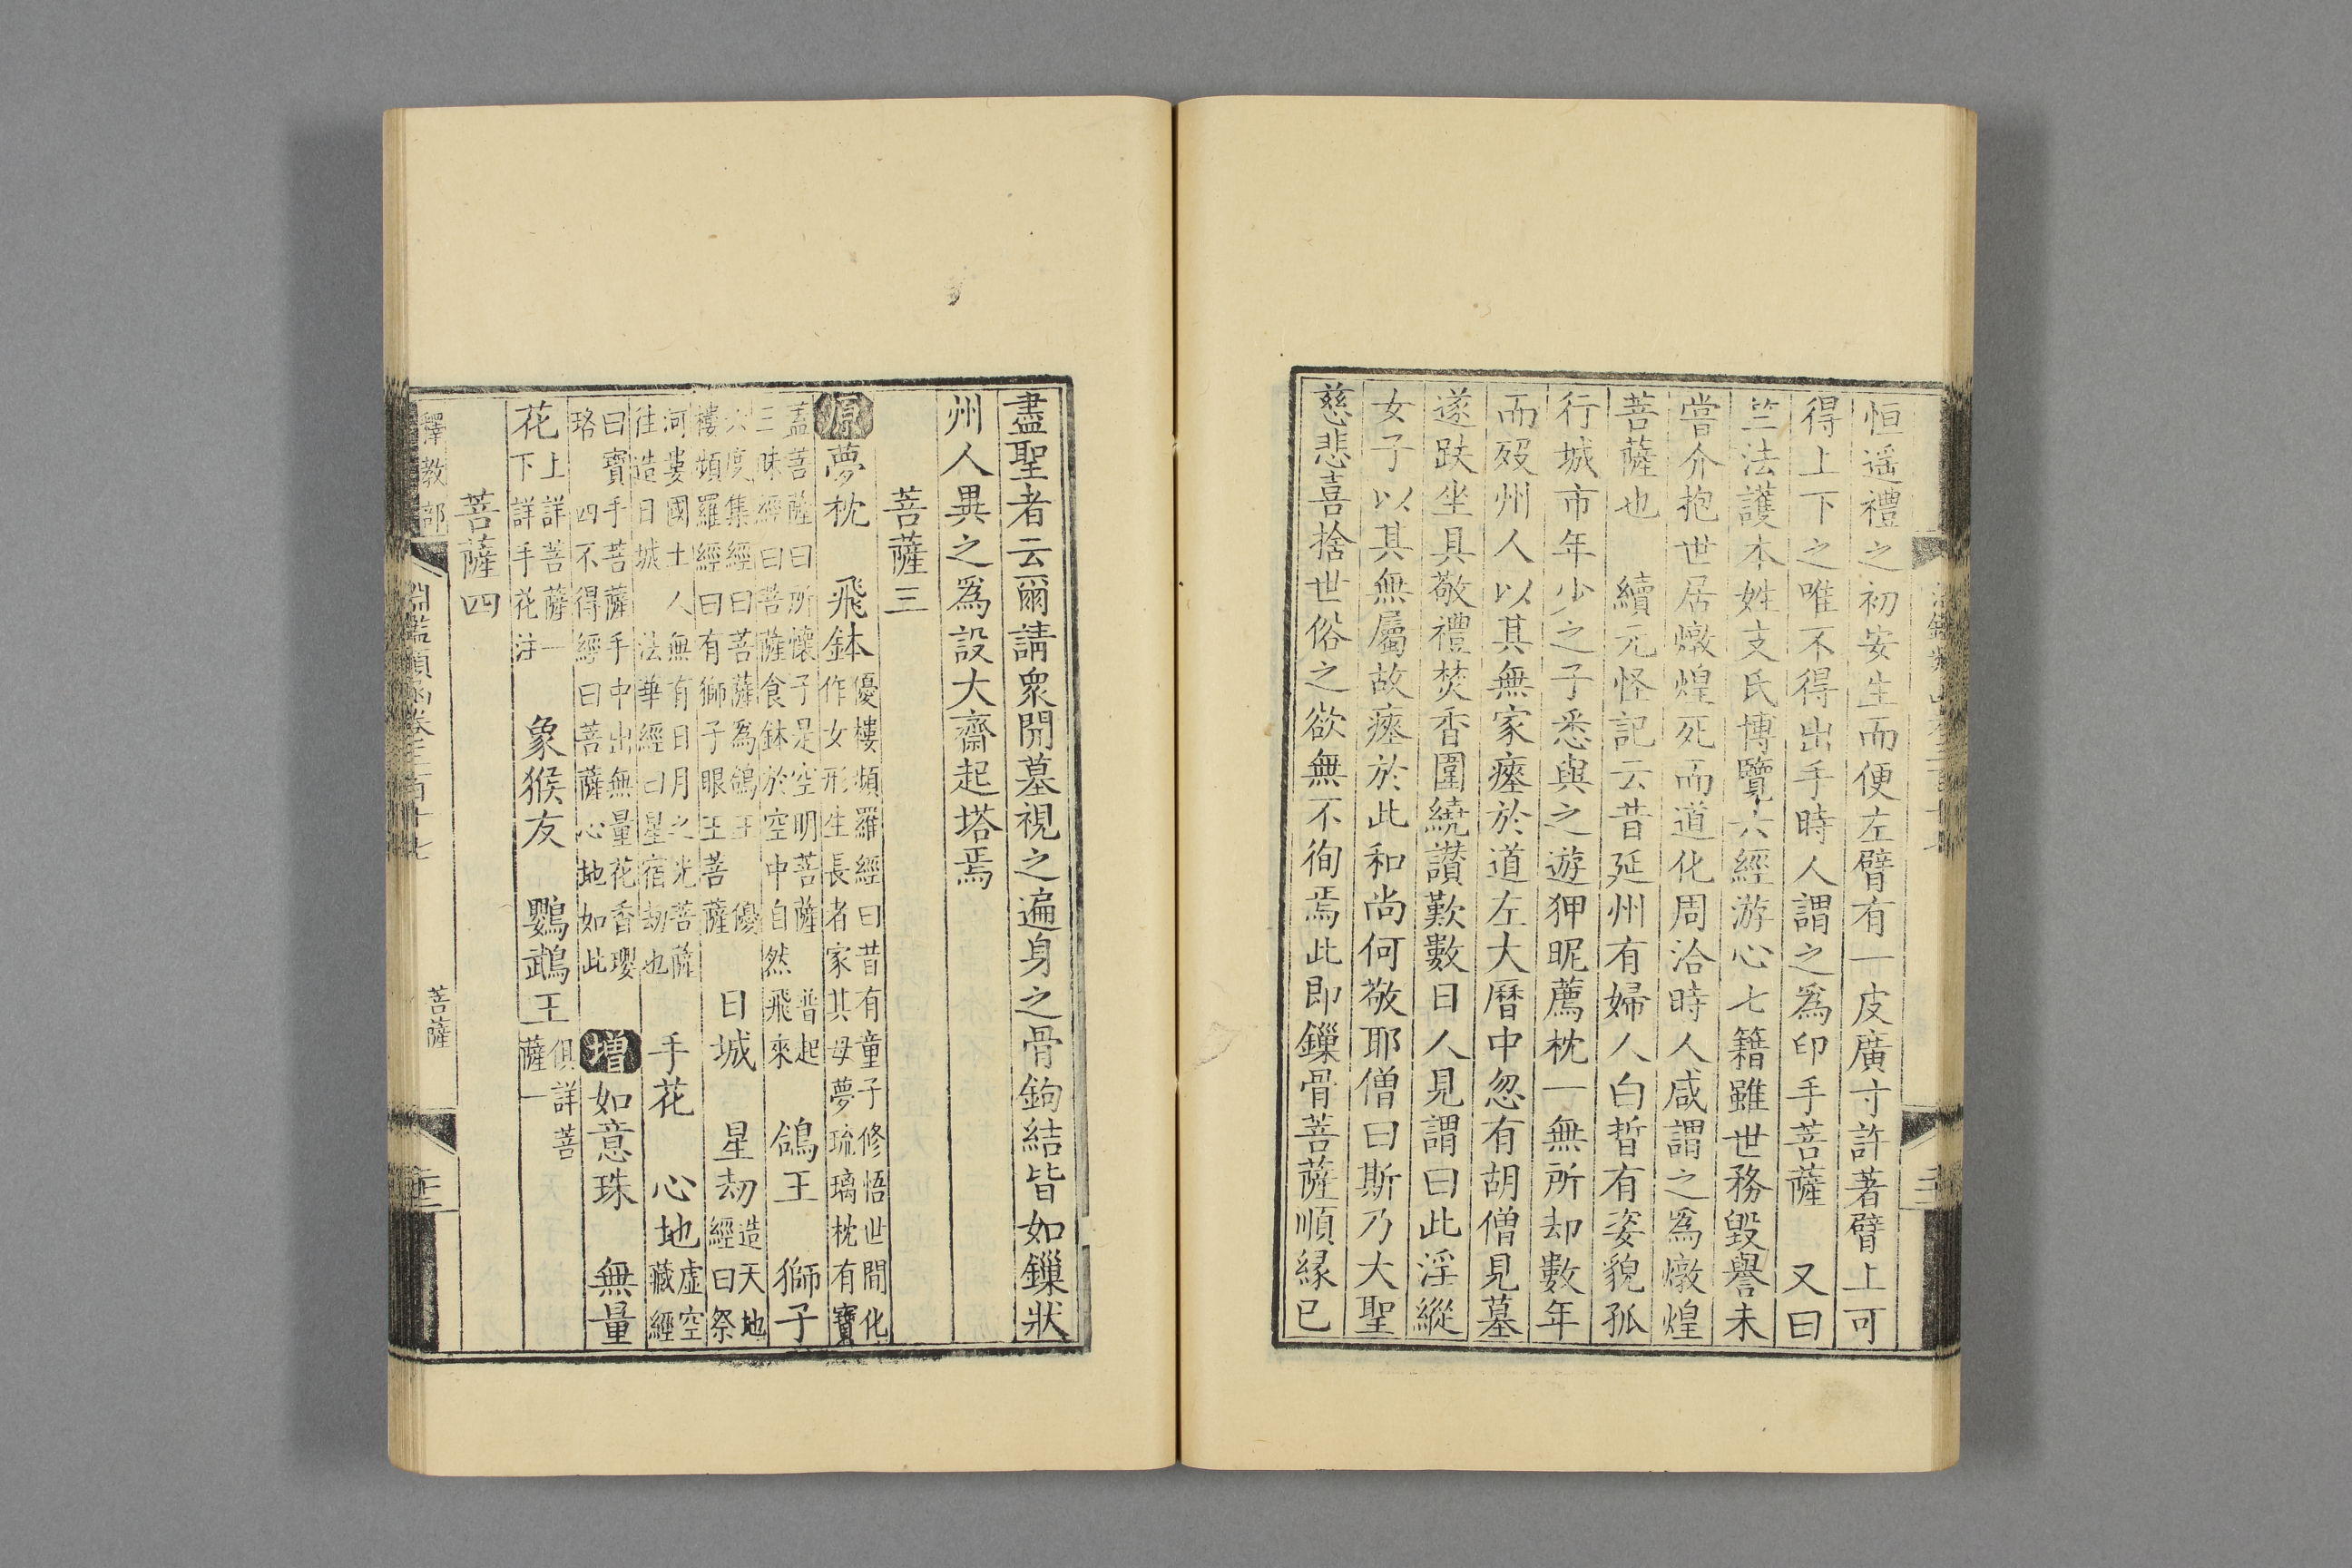 恒遥禮之初安生而便左臂有一皮廣寸許著臂上可
得上下之唯不得出手時人謂之爲印手菩薩　又曰
竺法護本姓支氏博覽六經游心七籍雖世務毀譽未
嘗介抱世居燉煌死而道化周洽時人咸謂之爲燉煌
菩薩也　續元怪記云昔延州有婦人白晳有姿貌孤
行城市年少之子悉與之遊狎昵薦枕一無所却數年
而殁州人以其無家瘞於道左大曆中忽有胡僧見墓
遂趺坐具敬禮焚香圍繞讃歎數日人見謂曰此淫縱
女子以其無屬故瘞於此和尚何敬耶僧曰斯乃大聖
慈悲喜捨世俗之欲無不徇焉此即鏁骨菩薩順縁已
盡聖者云爾請衆開墓視之遍身之骨鉤結皆如鏁狀
州人異之爲設大齋起塔焉
菩薩三
原夢枕　飛鉢優樓頻羅經曰昔有童子修悟世間化
作女形生長者家其母夢琉璃枕有寶
蓋菩薩曰所懷子是空明菩薩　普起
三昧經曰菩薩食鉢於空中自然飛來　鴿王　獅子
六度集經曰菩薩爲鴿王　優
樓頻羅經曰有獅子眼王菩薩　日城　星劫造天地
經曰祭
河婁國土人無有日月之光菩薩
往造日城　法華經曰星宿劫也　手花　心地虛空
藏經
曰寶手菩薩手中出無量花香瓔
珞　四不得經曰菩薩心地如此　增如意珠　無量
花上詳菩薩一
下詳手花注　象猴友　鸚鵡王俱詳菩
薩一
菩薩四
釋教部
淵鑑類函卷三百十七
菩薩